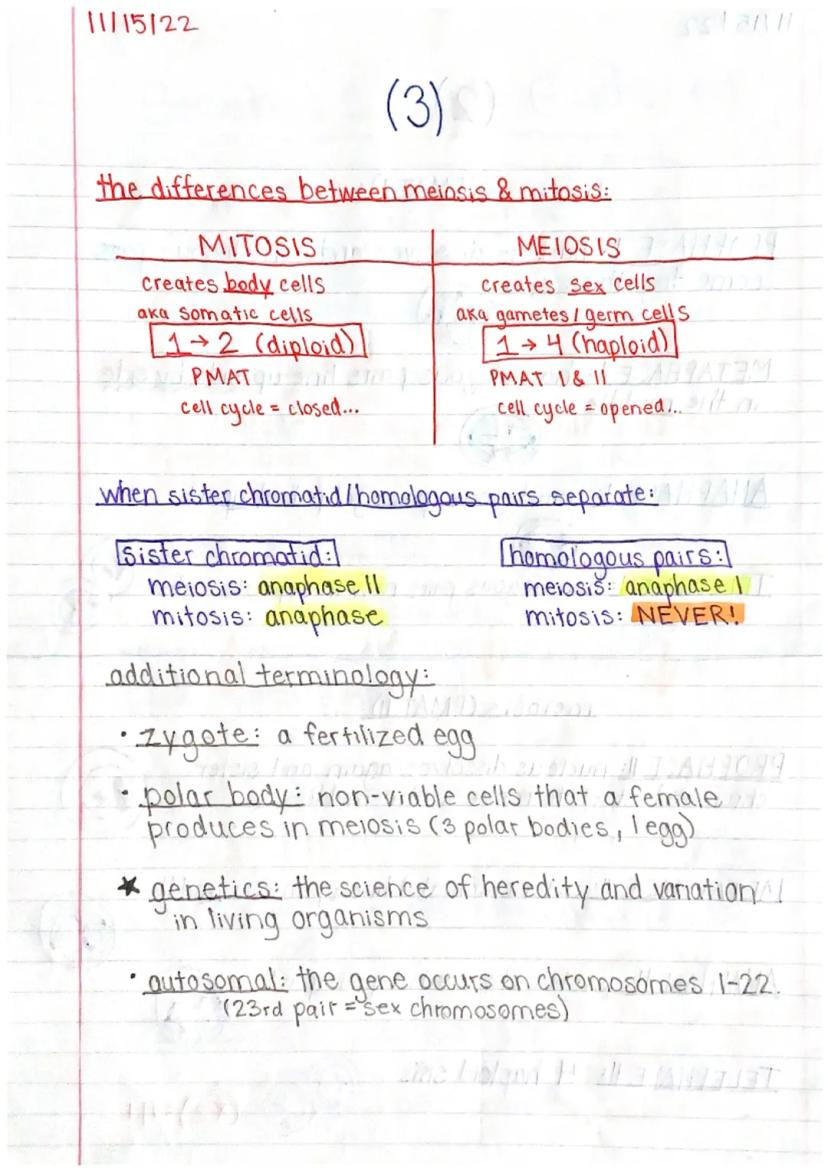 11/15/22
(3)
the differences between meiosis & mitosis:
MITOSIS MEIOSIS
creates body cells creates sex cells
aka somatic cells aka gametes / germ cells
1 → 2 (diploid) 1 → 4 (haploid)
PMAT PMAT I & II
cell cycle = closed... cell cycle = opened...
when sister chromatid/homologous pairs separate:
sister chromatid: homologous pairs:
meiosis: anaphase II meiosis: anaphase I
mitosis: anaphase mitosis: NEVER!
additional terminology:
• zygote: a fertilized egg
• polar body: non-viable cells that a female
produces in meiosis (3 polar bodies, 1 egg)
★ genetics: the science of heredity and variation
in living organisms
• autosomal: the gene occurs on chromosomes 1-22.
(23rd pair = sex chromosomes)